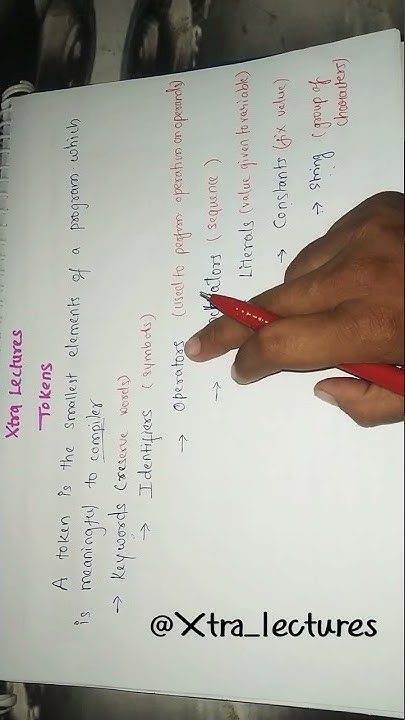 Xtra Lectures
Tokens
A token is the smallest elements of a program which
is meaningful to compiler
→ Keywords (reserve words)
→ Identifiers (symbols)
→ Operators (used to perform operation on operands)
→ (sequence)
Literals (value given to variable)
→ Constants (fix value)
→ String (group of
characters)
@Xtra_lectures